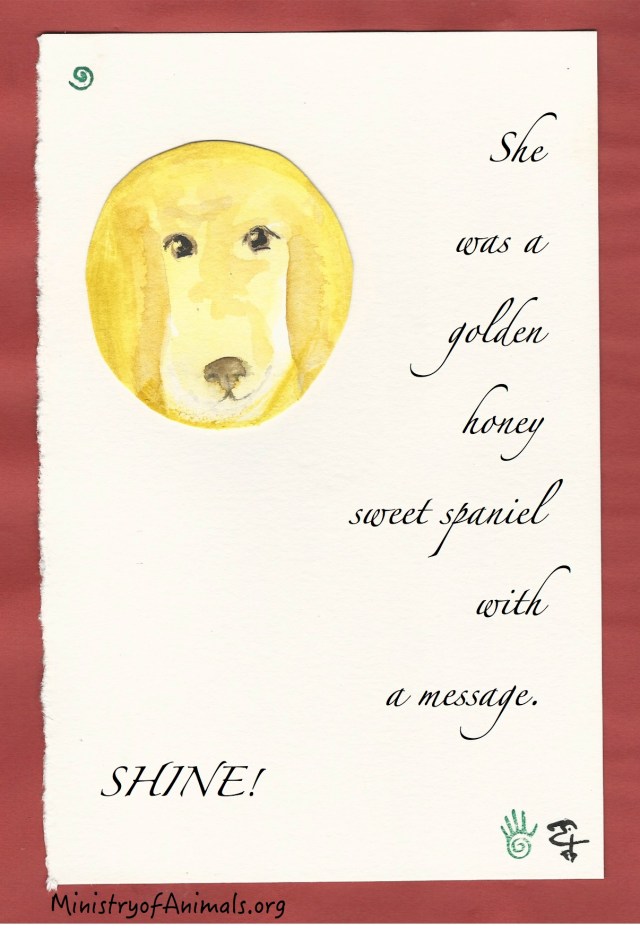 She
was a
golden
honey
sweet spaniel
with
a message.
SHINE!
MinistryofAnimals.org